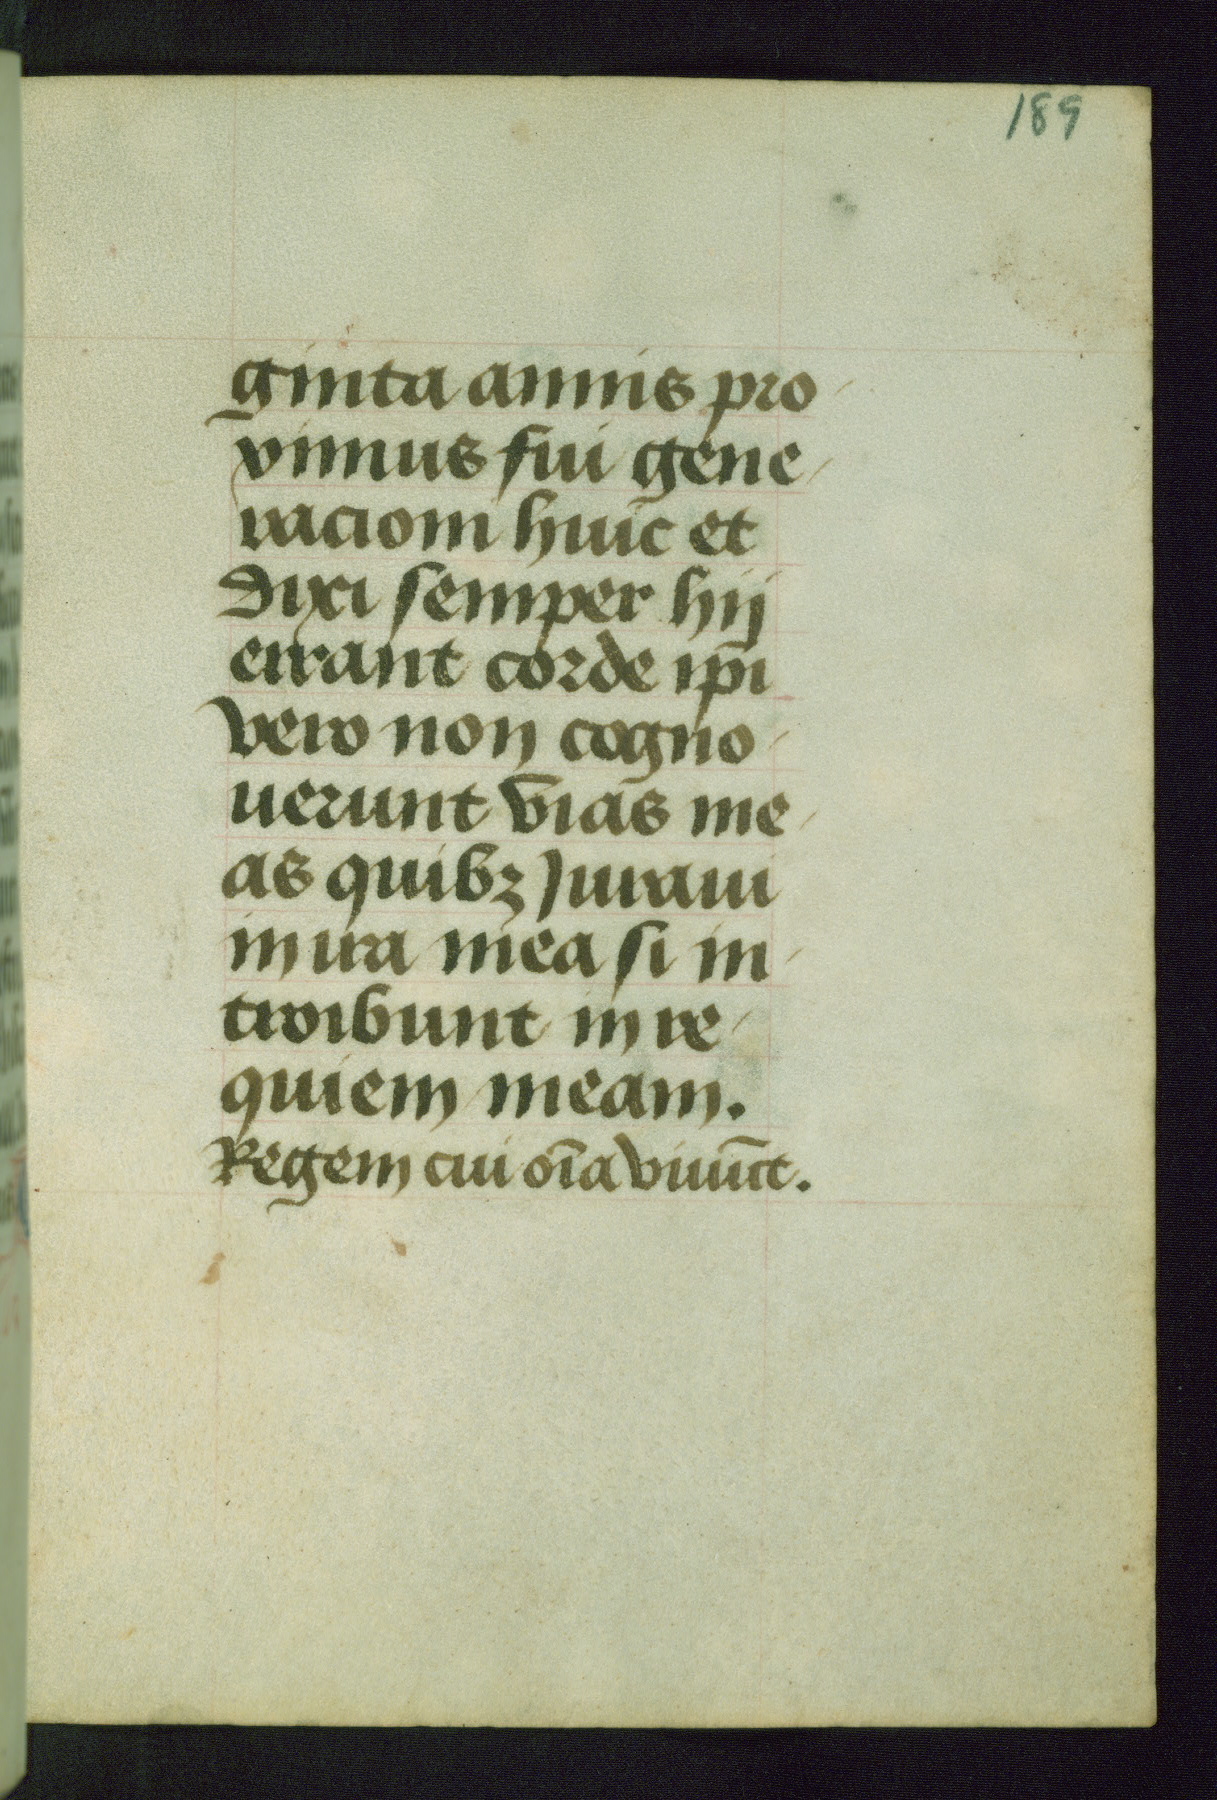 189
ginta annis pro
ximus fui gene
racioni huic et
dixi semper hij
errant corde ip̅i
vero non cogno
uerunt vias me
as quibꝫ Juraui
in ira mea si in
troibunt in re
quiem meam.
Regem cui oīa viuūt.